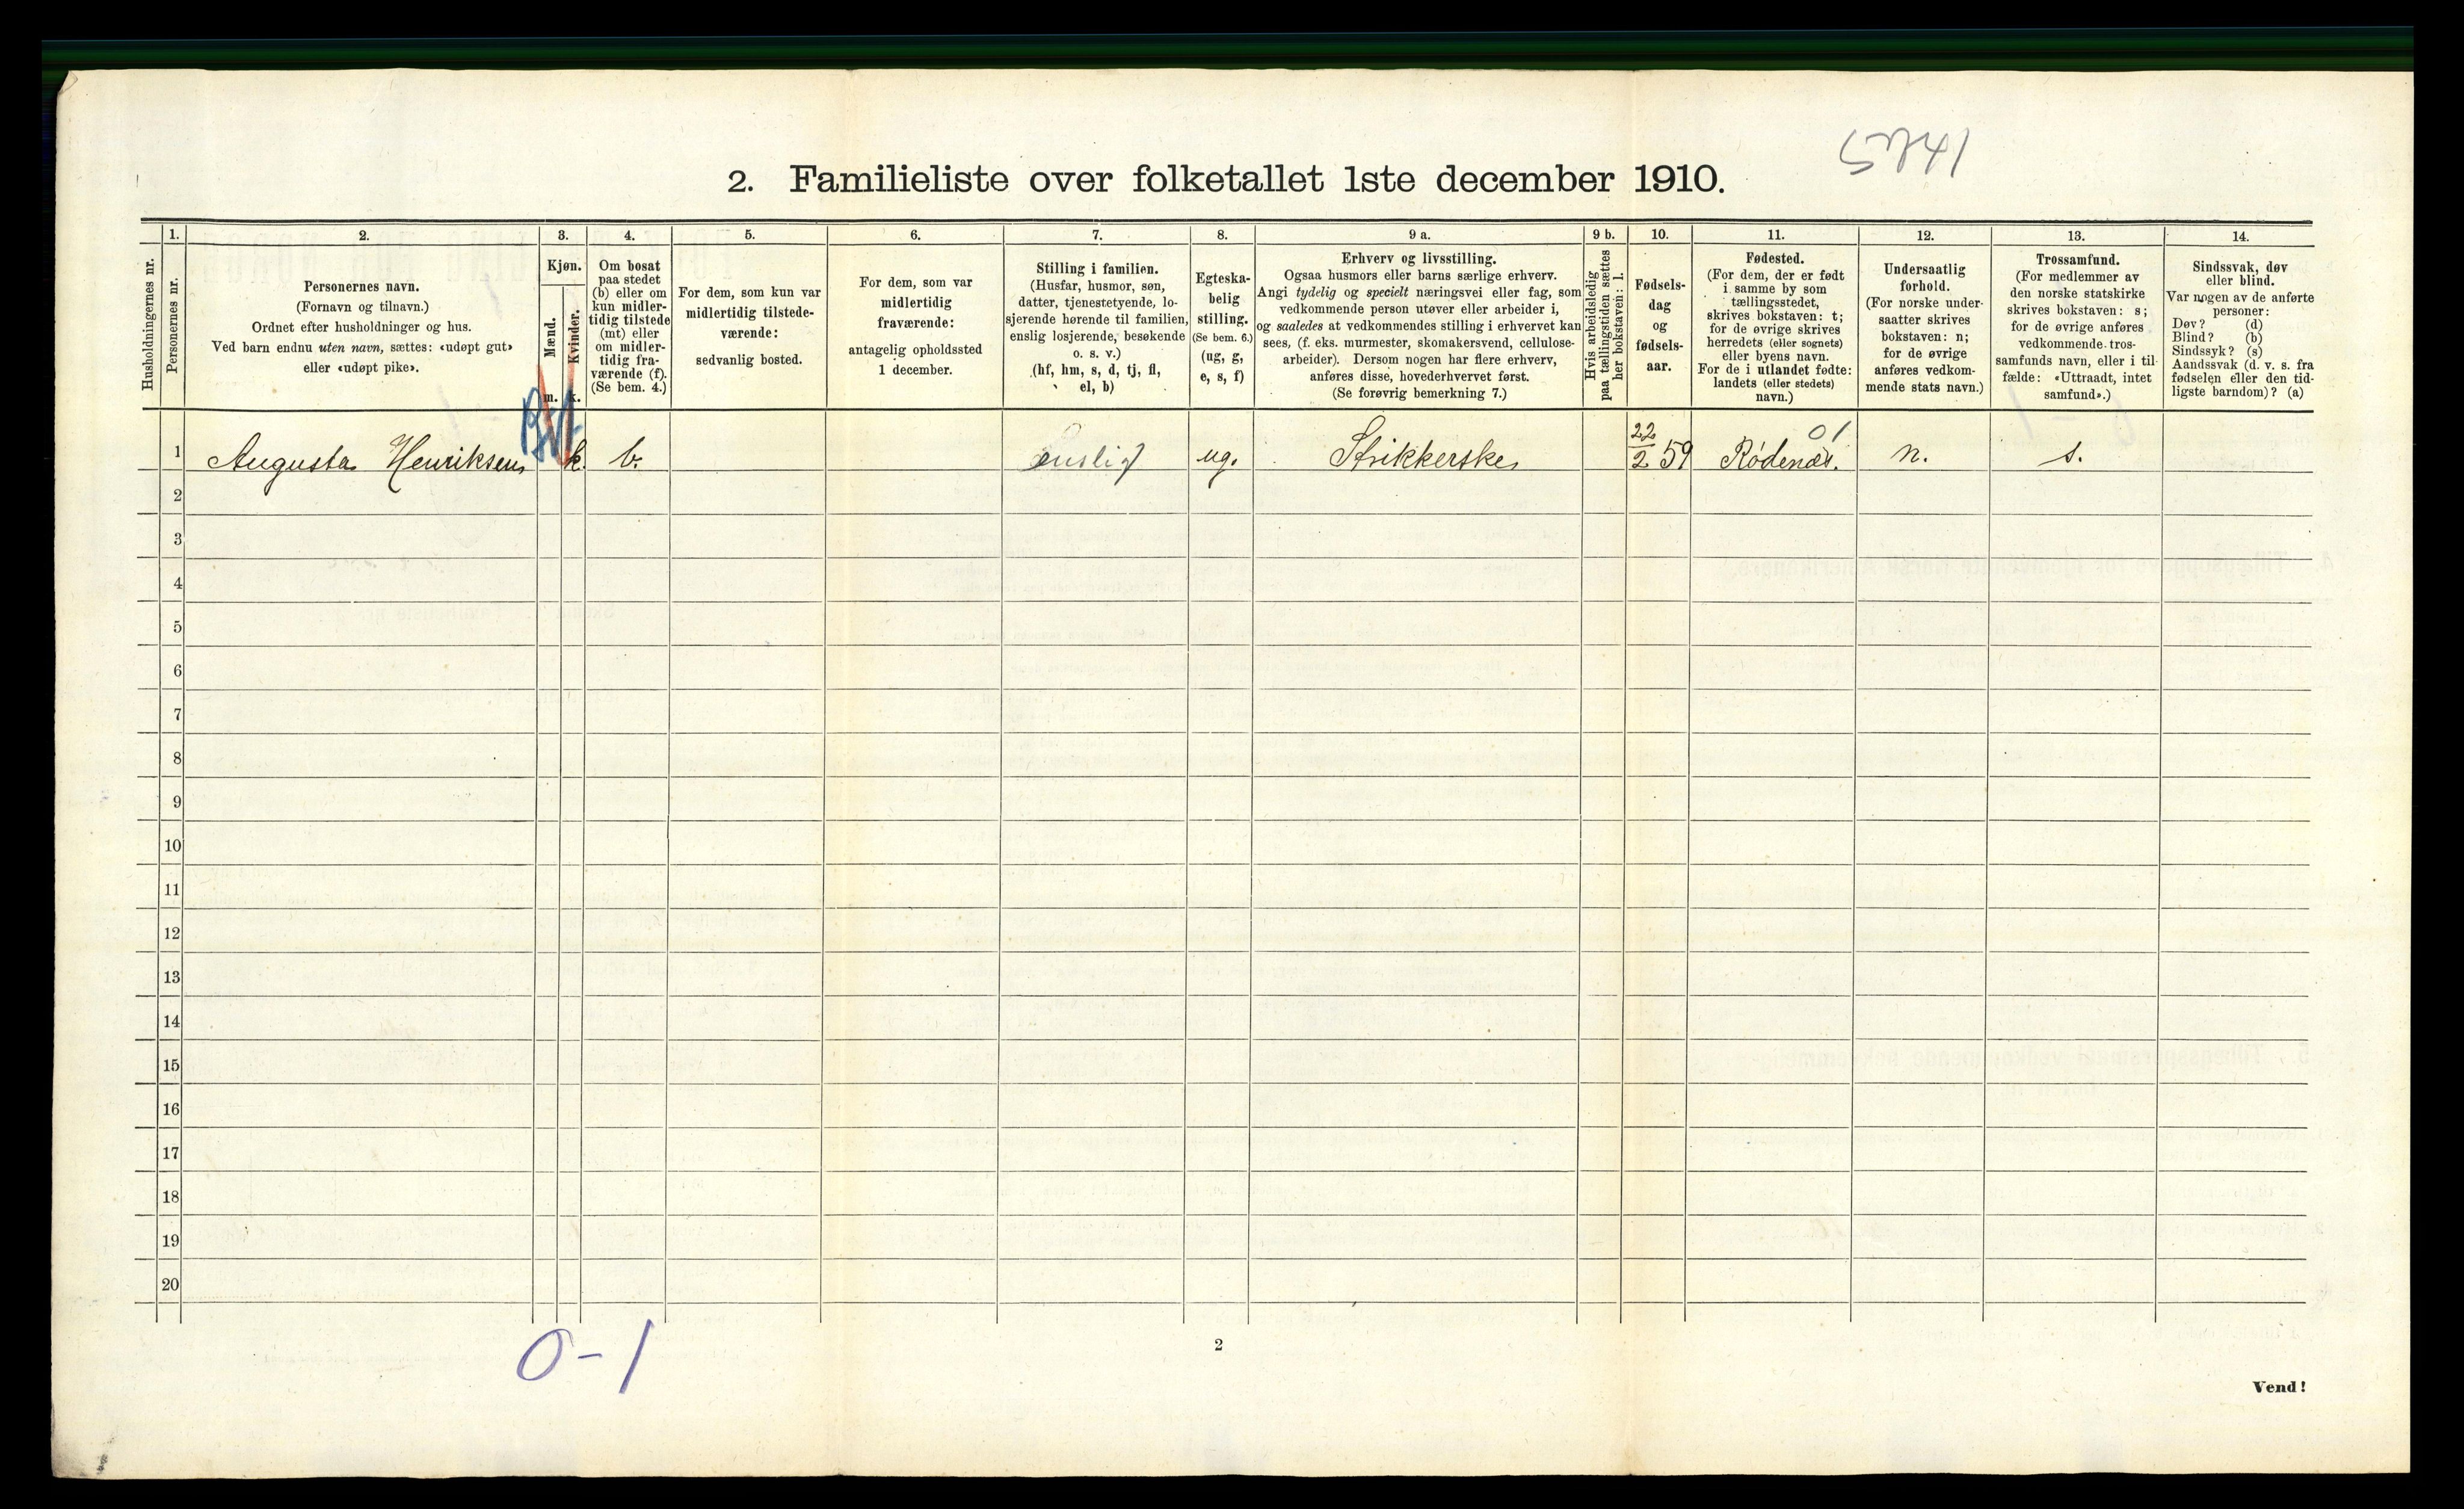 2. Familieliste over folketallet 1ste december 1910.
Husholdningernes nr.
1.
Personernes nr.
2.
Personernes navn.
(Fornavn og tilnavn.)
Ordnet efter husholdninger og hus.
Ved barn endnu uten navn, sættes: «udøpt gut»
eller «udøpt pike».
3.
Kjøn.
Mænd.
Kvinder.
m. k.
4.
Om bosat
paa stedet
(b) eller om
kun midler-
tidig tilstede
(mt) eller
om midler-
tidig fra-
værende (f).
(Se bem. 4.)
5.
For dem, som kun var
midlertidig tilstede-
værende:
sedvanlig bosted.
6.
For dem, som var
midlertidig
fraværende:
antagelig opholdssted
1 december.
7.
Stilling i familien.
(Husfar, husmor, søn,
datter, tjenestetyende, lo-
sjerende hørende til familien,
enslig losjerende, besøkende
o. s. v.)
(hf, hm, s, d, tj, fl,
el, b)
8.
Egteska-
belig
stilling.
(Se bem. 6.)
(ug, g,
e, s, f)
9 a.
Erhverv og livsstilling.
Ogsaa husmors eller barns særlige erhverv.
Angi tydelig og specielt næringsvei eller fag, som
vedkommende person utøver eller arbeider i,
og saaledes at vedkommendes stilling i erhvervet kan
sees, (f. eks. murmester, skomakersvend, cellulose-
arbeider). Dersom nogen har flere erhverv,
anføres disse, hovederhvervet først.
(Se forøvrig bemerkning 7.)
9 b.
Hvis arbeidsledig
paa tællingstiden sættes
her bokstaven: l.
10.
Fødsels-
dag
og
fødsels-
aar.
11.
Fødested.
(For dem, der er født
i samme by som
tællingsstedet,
skrives bokstaven: t;
for de øvrige skrives
herredets (eller sognets)
eller byens navn.
For de i utlandet fødte:
landets (eller stedets)
navn.)
12.
Undersaatlig
forhold.
(For norske under-
saatter skrives
bokstaven: n;
for de øvrige
anføres vedkom-
mende stats navn.)
13.
Trossamfund.
(For medlemmer av
den norske statskirke
skrives bokstaven: s;
for de øvrige anføres
vedkommende tros-
samfunds navn, eller i til-
fælde: «Uttraadt, intet
samfund».)
14.
Sindssvak, døv
eller blind.
Var nogen av de anførte
personer:
Døv? (d)
Blind? (b)
Sindssyk? (s)
Aandssvak (d. v. s. fra
fødselen eller den tid-
ligste barndom)? (a)
1 Augusta Henriksen k. b. enslig ug. Strikkerske 22/2 59 Rødenæs. 01 n. s.
2
3
4
5
6
7
8
9
10
11
12
13
14
15
16
17
18
19
20
0-1
2
Vend!